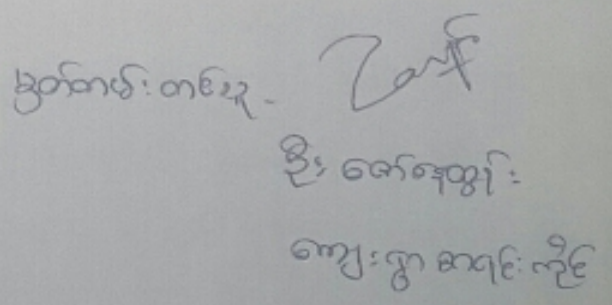 မှတ်တမ်းတင်သူ -
ဦးဇော်နေထွန်း
ကျေးရွာစာရင်းကိုင်